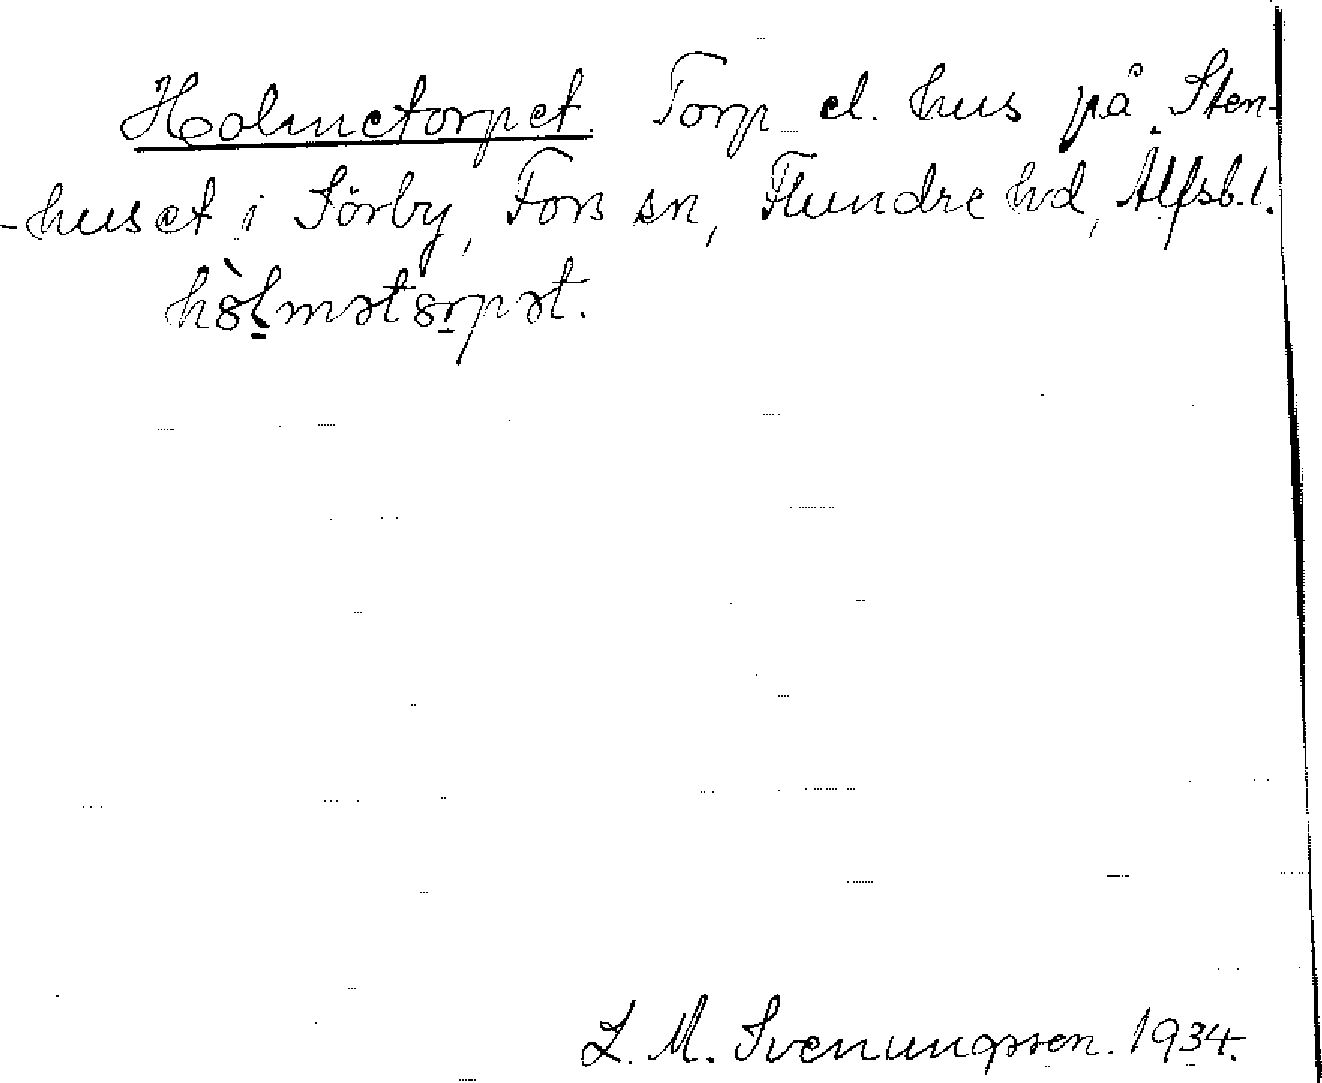 Holmetorpet. Torp el. hus på Sten-
-huset i Sörby, Fors sn, Flundre hd, Älfsb. l.
hòlmətorpət.
L. M. Svenungsson. 1934.